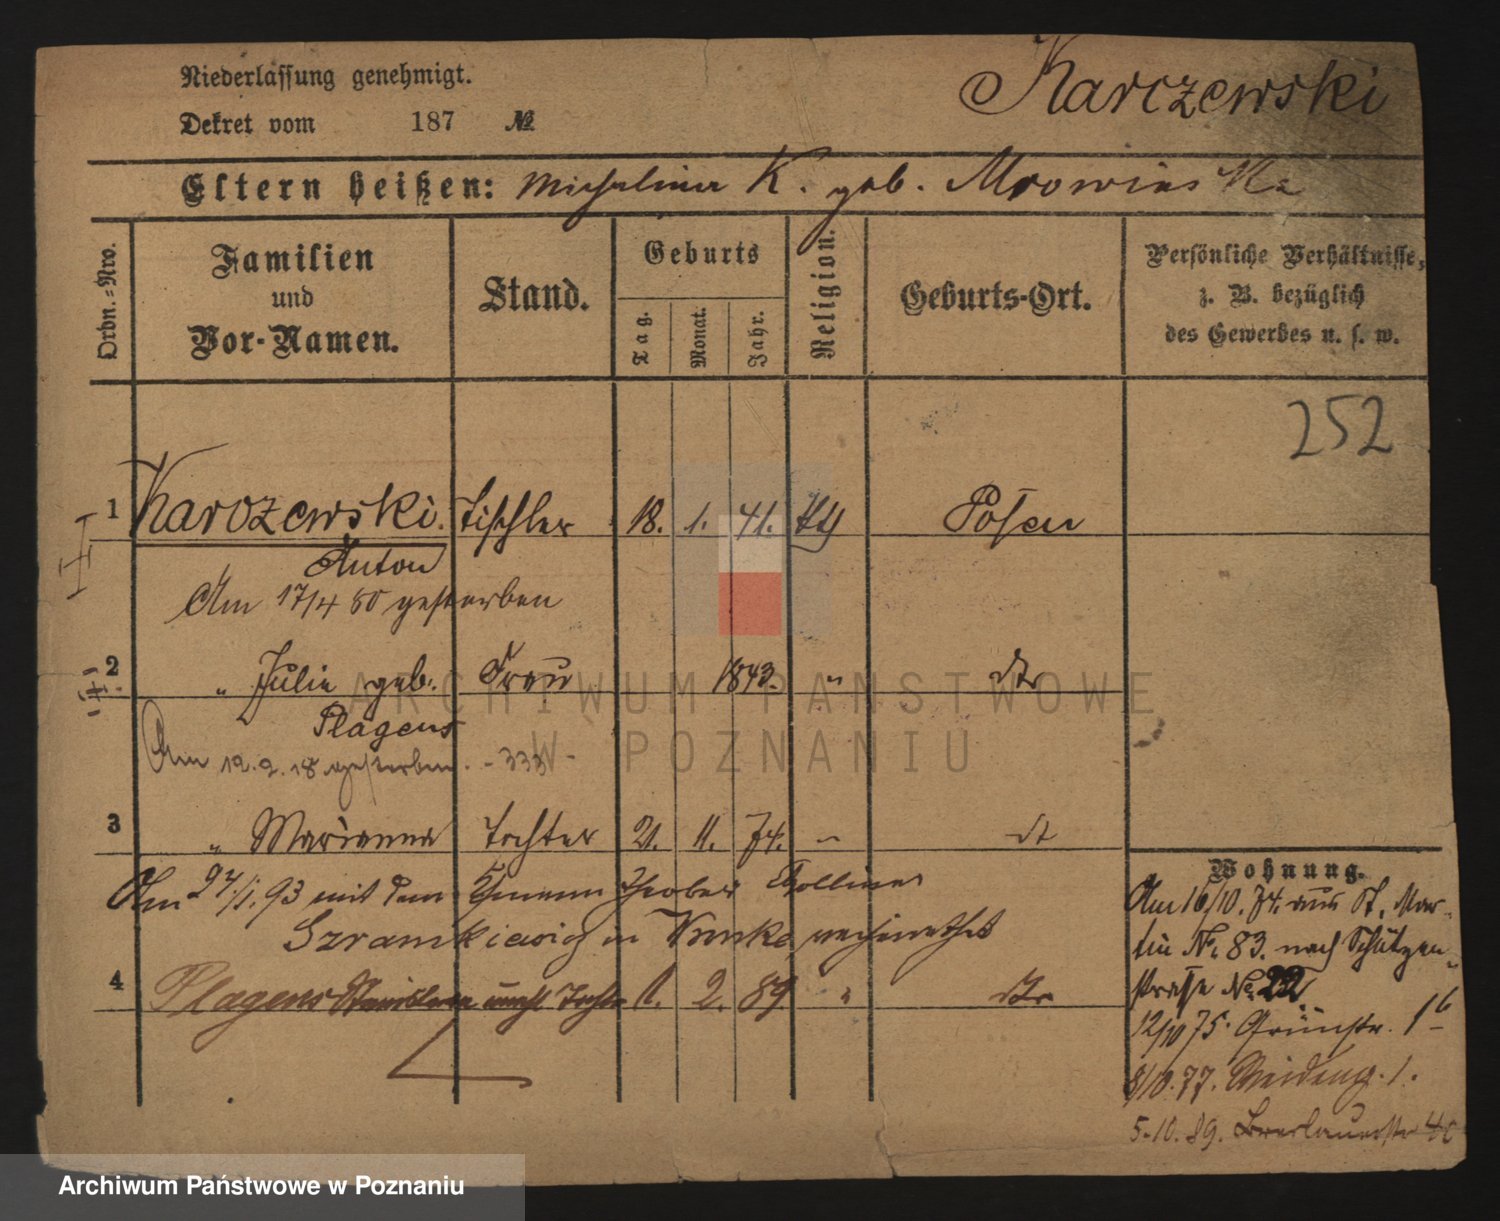 Niederlassung genehmigt.
Karczewski
Dekret vom 187 №
Eltern heißen: Michalina K. geb. Mrowinska
Ordn.-Nro.
Familien
und
Vor-Namen.
Stand.
Geburts
Tag.
Monat.
Jahr.
Religion.
Geburts-Ort.
Persönliche Verhältnisse,
z. B. bezüglich
des Gewerbes u. s. w.
252
1 Karczewski. Tischler 18. 1. 41. Posen
Anton
Am 17/4 80 gestorben
2 " Julie geb. Frau 1843. " dto
Plagens
Am 12.2.18 gestorben. - 333 -
3 " Marianna Tochter 21. 11. 74. " dto
Am 27/1. 93 mit dem
in verheirathet
4 Plagens Stanislawa unehl Tochter 1. 2. 89 " dto
Wohnung.
Am 16/10. 74. aus St. Mar-
tin № 83. nach Schützen-
straße № 22
12/10 75. Grünstr. 1
8/10. 77. Weideng. 1.
5.10.89. Breslauerstr
ARCHIWUM PAŃSTWOWE
W POZNANIU
Archiwum Państwowe w Poznaniu